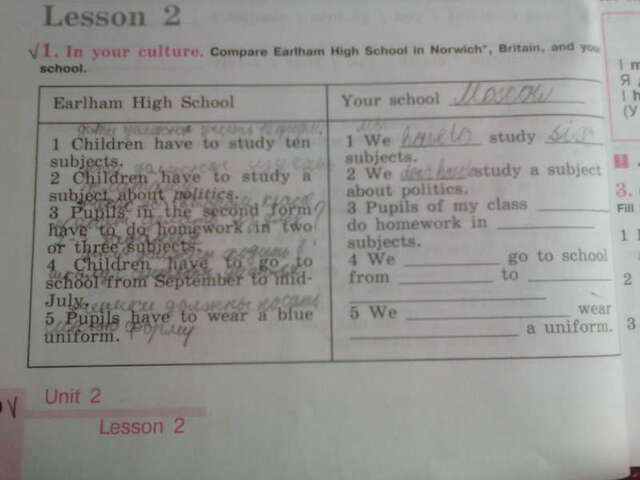 Lesson 2
√1. In your culture. Compare Earlham High School in Norwich*, Britain, and you
school.
Earlham High School
1 Children have to study ten
subjects.
2 Children have to study a
subject about politics.
3 Pupils in the second form
have to do homework in two
or three subjects.
4 Children have to go to
school from September to mid-
July.
5 Pupils have to wear a blue
uniform.
Your school Moscow
1 We have to study six
subjects.
2 We don't have study a subject
about politics.
3 Pupils of my class ________
do homework in ________
subjects.
4 We ________ go to school
from ________ to ________
________
5 We ________ wear
________ a uniform.
должны носить
форму
Unit 2
Lesson 2
I m
Я
I h
(У
3.
Fill
1
2
3